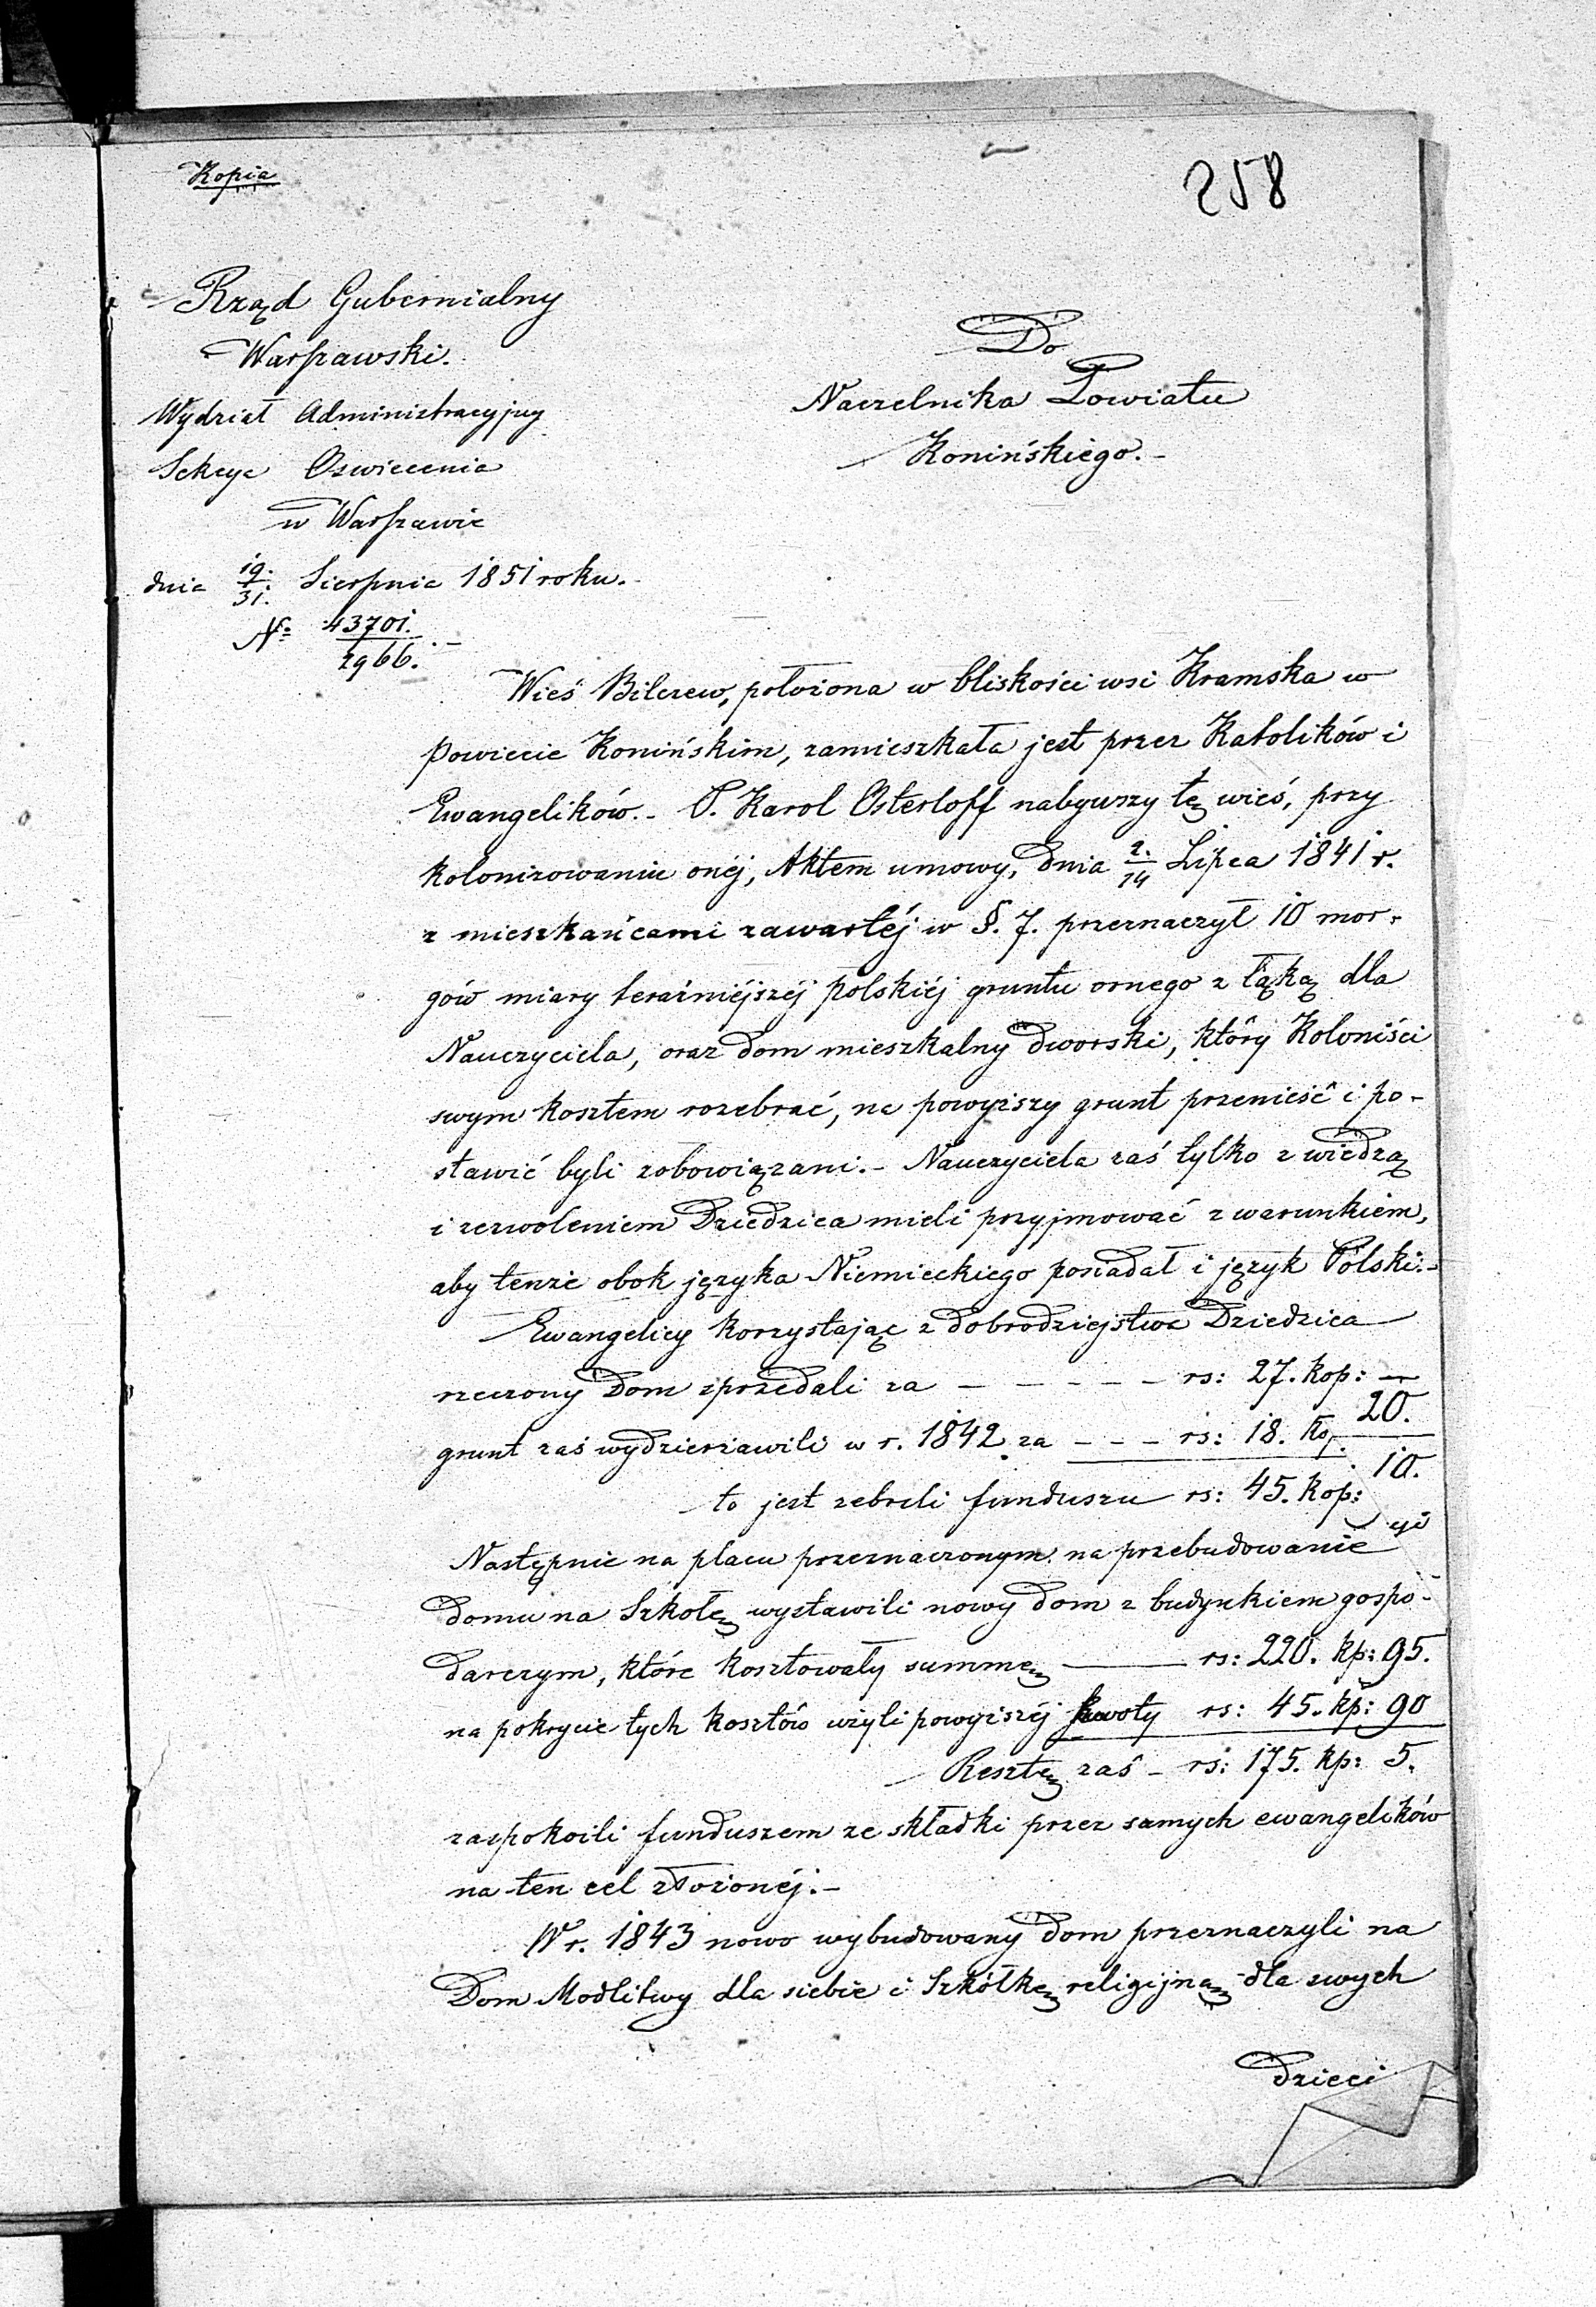 Kopia
258
Rząd Gubernialny
Warszawski.
Wydział Administracyjny
Sekcya Oswiecenia
w Warszawie
dnia 19/31 Sierpnia 1851 roku.
№ 43701./2966.
Do
Naczelnika Powiatu
Konińskiego.-
Wieś Bilczew, położona w bliskości wsi Kramska w
powiecie Konińskim, zamieszkała jest przez Katolików i
Ewangelików.- P. Karol Osterloff nabywszy tę wieś, przy
kolonizowaniu onéj, Aktem umowy, dnia 2/14 Lipca 1841 r.
z mieszkańcami zawartéj w §. 7. przeznaczył 10 mor-
gów miary teraźniéjszéj polskiéj gruntu ornego z łąką dla
Nauczyciela, oraz dom mieszkalny dworski, który Koloniści
swym kosztem rozebrać, na powyższy grunt przenieść i po-
stawić byli zobowiązani.- Nauczyciela zaś tylko z wiedzą
i zezwoleniem Dziedzica mieli przyjmować z warunkiem,
aby tenże obok języka Niemieckiego posiadał i język Polski.-
Ewangelicy korzystając z dobrodziejstwa Dziedzica
rzeczony dom sprzedali za - - - - - rs: 27. kop: —
grunt zaś wydzierżawili w r. 1842 za - - - rs: 18. kop. 20.
to jest zebrali funduszu rs: 45. kop: 10.
Następnie na placu przeznaczonym na przebudowanie
domu na Szkołę wystawili nowy dom z budynkiem gospo-
darczym, które kosztowały summę — rs: 220. kp: 95.
na pokrycie tych kosztów użyli powyższéj kwoty rs: 45. kp: 90
Resztę zaś - rs: 175. kp: 5.
zaspokoili funduszem ze składki przez samych ewangelików
na ten cel złożonéj.-
W r. 1843 nowo wybudowany dom przeznaczyli na
Dom Modlitwy dla siebie i Szkółkę religijną dla swych
dzieci